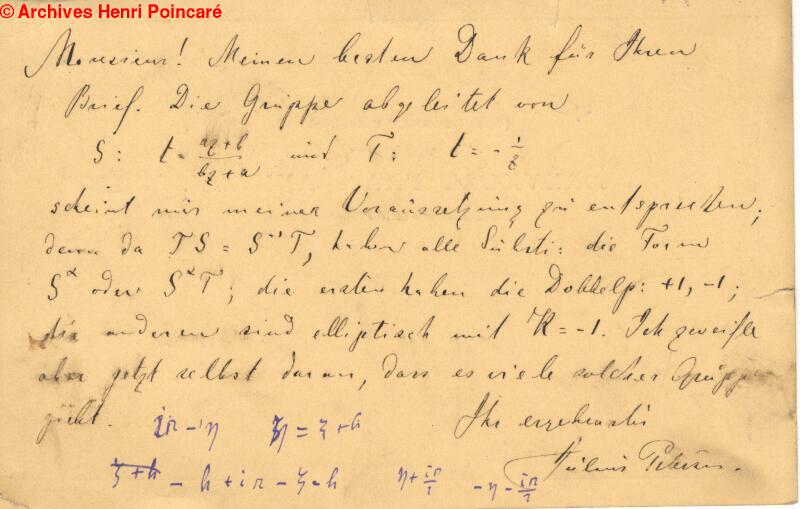 © Archives Henri Poincaré
Monsieur! Meinen besten Dank für Ihren
Brief. Die Gruppe abgeleitet von
S: t = (az+b)/(bz+a) und T: t = -1/z
scheint mir meiner Voraussetzung zu entsprechen;
denn da TS = S⁻¹T, haben alle Substi: die Form
S^α oder S^αT; die ersten haben die Dobbelp: +1, -1;
die anderen sind elliptisch mit K = -1. Ich zweifle
aber jetzt selbst daran, dass es viele solcher Gruppen
giebt.
Ihr ergebenster
Julius Petersen.
η = ξ + h
ξ+h - h + iπ - ξ - h